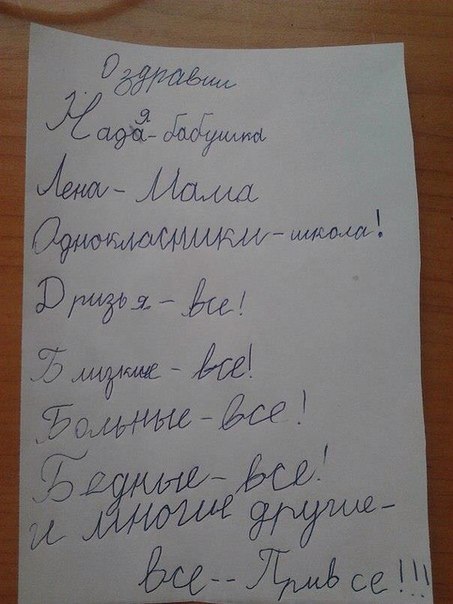 О здравии
Надя - бабушка
Лена - Мама
Однокласники - школа!
Дризья - все!
Близкие - все!
Больные - все!
Бедные - все!
и многие другие -
все -- Прив се!!!